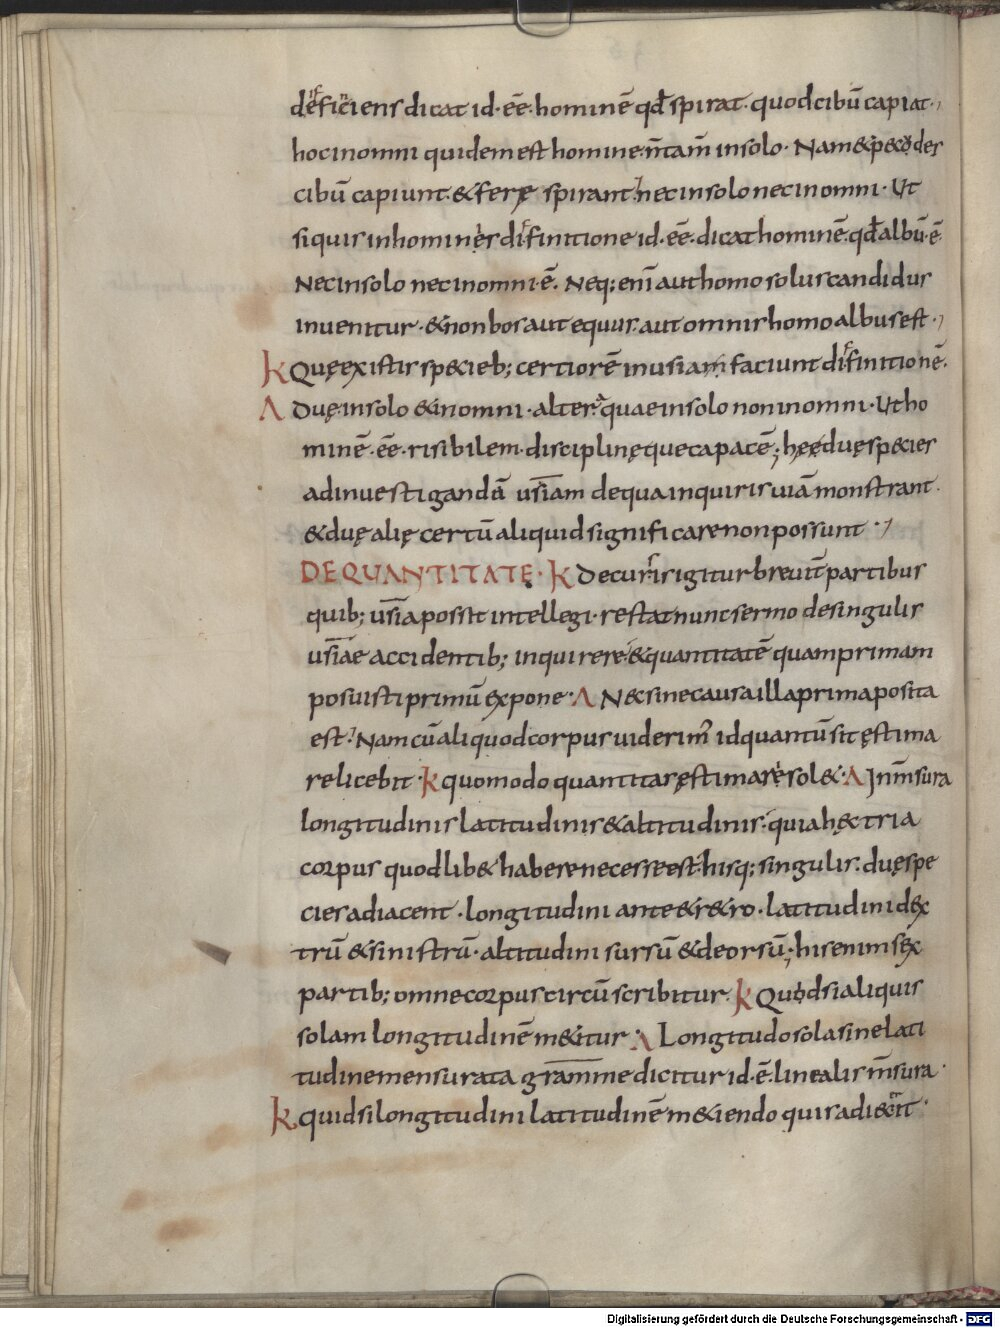 deficiens dicat id · eē · hominē qđ spirat · quod cibū capiat ·
hoc in omni quidem est homine · n̄ tam̄ in solo · Nam & pecodes
cibū capiunt · & ferę spirant · nec in solo nec in omni · Ut
si quis in hominis difinitione id · eē · dicat hominē · qđ albū · ē ·
Nec in solo nec in omni · ē · Neq; eni͞ aut homo solus candidus
inuenitur · & non bos aut equus · aut omnis homo albus est ·
K Quę ex istis specieb; certiorē in usiam faciunt difinitionē ·
Λ Duę · in solo & in omni · altera quae in solo non in omni · Ut ho
minē · eē · risibilem · disciplinęque capacē ; hęę duę species
ad inuestigandā usīam de qua inquiris uiā monstrant ·
& duę alię certū aliquid significare non possunt ·
DE QUANTITATĘ · K Decursis igitur breuit̄ partibus
quib; usīa possit intellegi · restat nunc sermo de singulis
usīae accidentib; inquirere · & quantitatē quam primam
posuisti primū expone · Λ Nec sine causa illa prima posita
est · Nam cū aliquod corpus uiderim᷒ id quantū sit ęstima
re licebit · K quomodo quantitas ęstimari sol& · Λ In m̄sura
longitudinis latitudinis & altitudinis · quia hęc tria
corpus quodlib& habere necesse est · hisq; singulis · duę spe
cies adiacent · longitudini ante & r&ro · latitudini dex
trū & sinistrū · altitudini sursū & deorsū ; his enim sex
partib; omne corpus circū scribitur · K Quod si aliquis
solam longitudinē m&itur · Λ Longitudo sola sine lati
tudine mensurata gramme dicitur id · ē · linealis m̄sura ·
K quid si longitudini latitudinē m&iendo quis adiec̄it ·